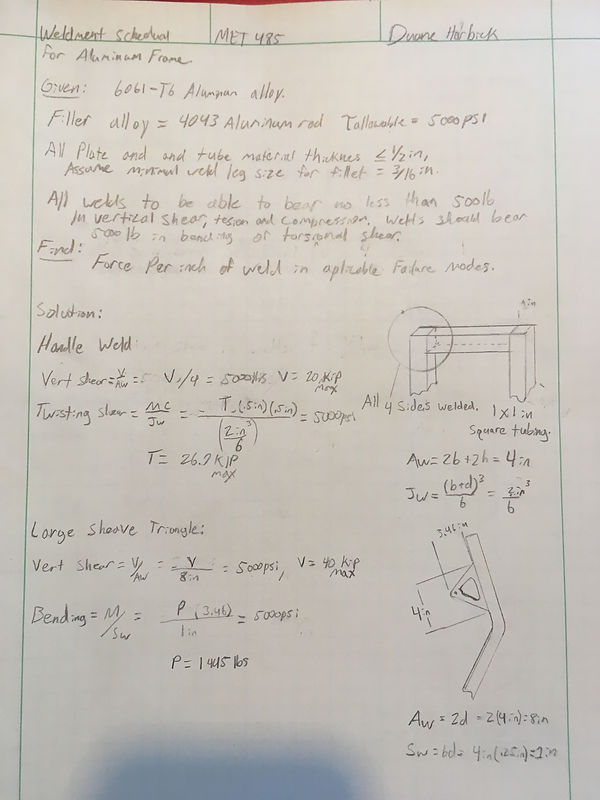 Weldment Schedual
MET 485
Duane Harbick
For Aluminum Frame.
Given: 6061-T6 Alumnum alloy.
Filler alloy = 4043 Aluminum rod Tallowable = 5000psi
All Plate and and tube material thicknes ≤ 1/2 in,
Assume minimal weld leg size for fillet = 3/16 in.
All welds to be able to bear no less than 500lb
In vertical shear, tesion and compression. Welds should bear
5000 lb in bending or torsional shear.
Find:
Force Per inch of weld in aplicable Failure Modes.
Solution:
Handle Weld:
Vert shear = V/Aw = V/4 = 5000 V = 20 Kip max
Twisting shear = MC/Jw = T (.5in)(.5in)/(2in³/6) = 5000psi
T = 26.7 KIP max
1in
All 4 sides welded.
1 x 1 in
Square tubing.
Aw = 2b + 2h = 4in
Jw = (b+d)³/6 = 2in³/6
Large Sheave Triangle:
Vert shear = V/Aw = V/8in = 5000psi, V = 40 Kip max
Bending = M/Sw = P (3.46)/1in = 5000psi
P = 1445 lbs
3.46in
4in
Aw = 2d = 2(4in) = 8in
Sw = bd = 4in(.25in) = 1in